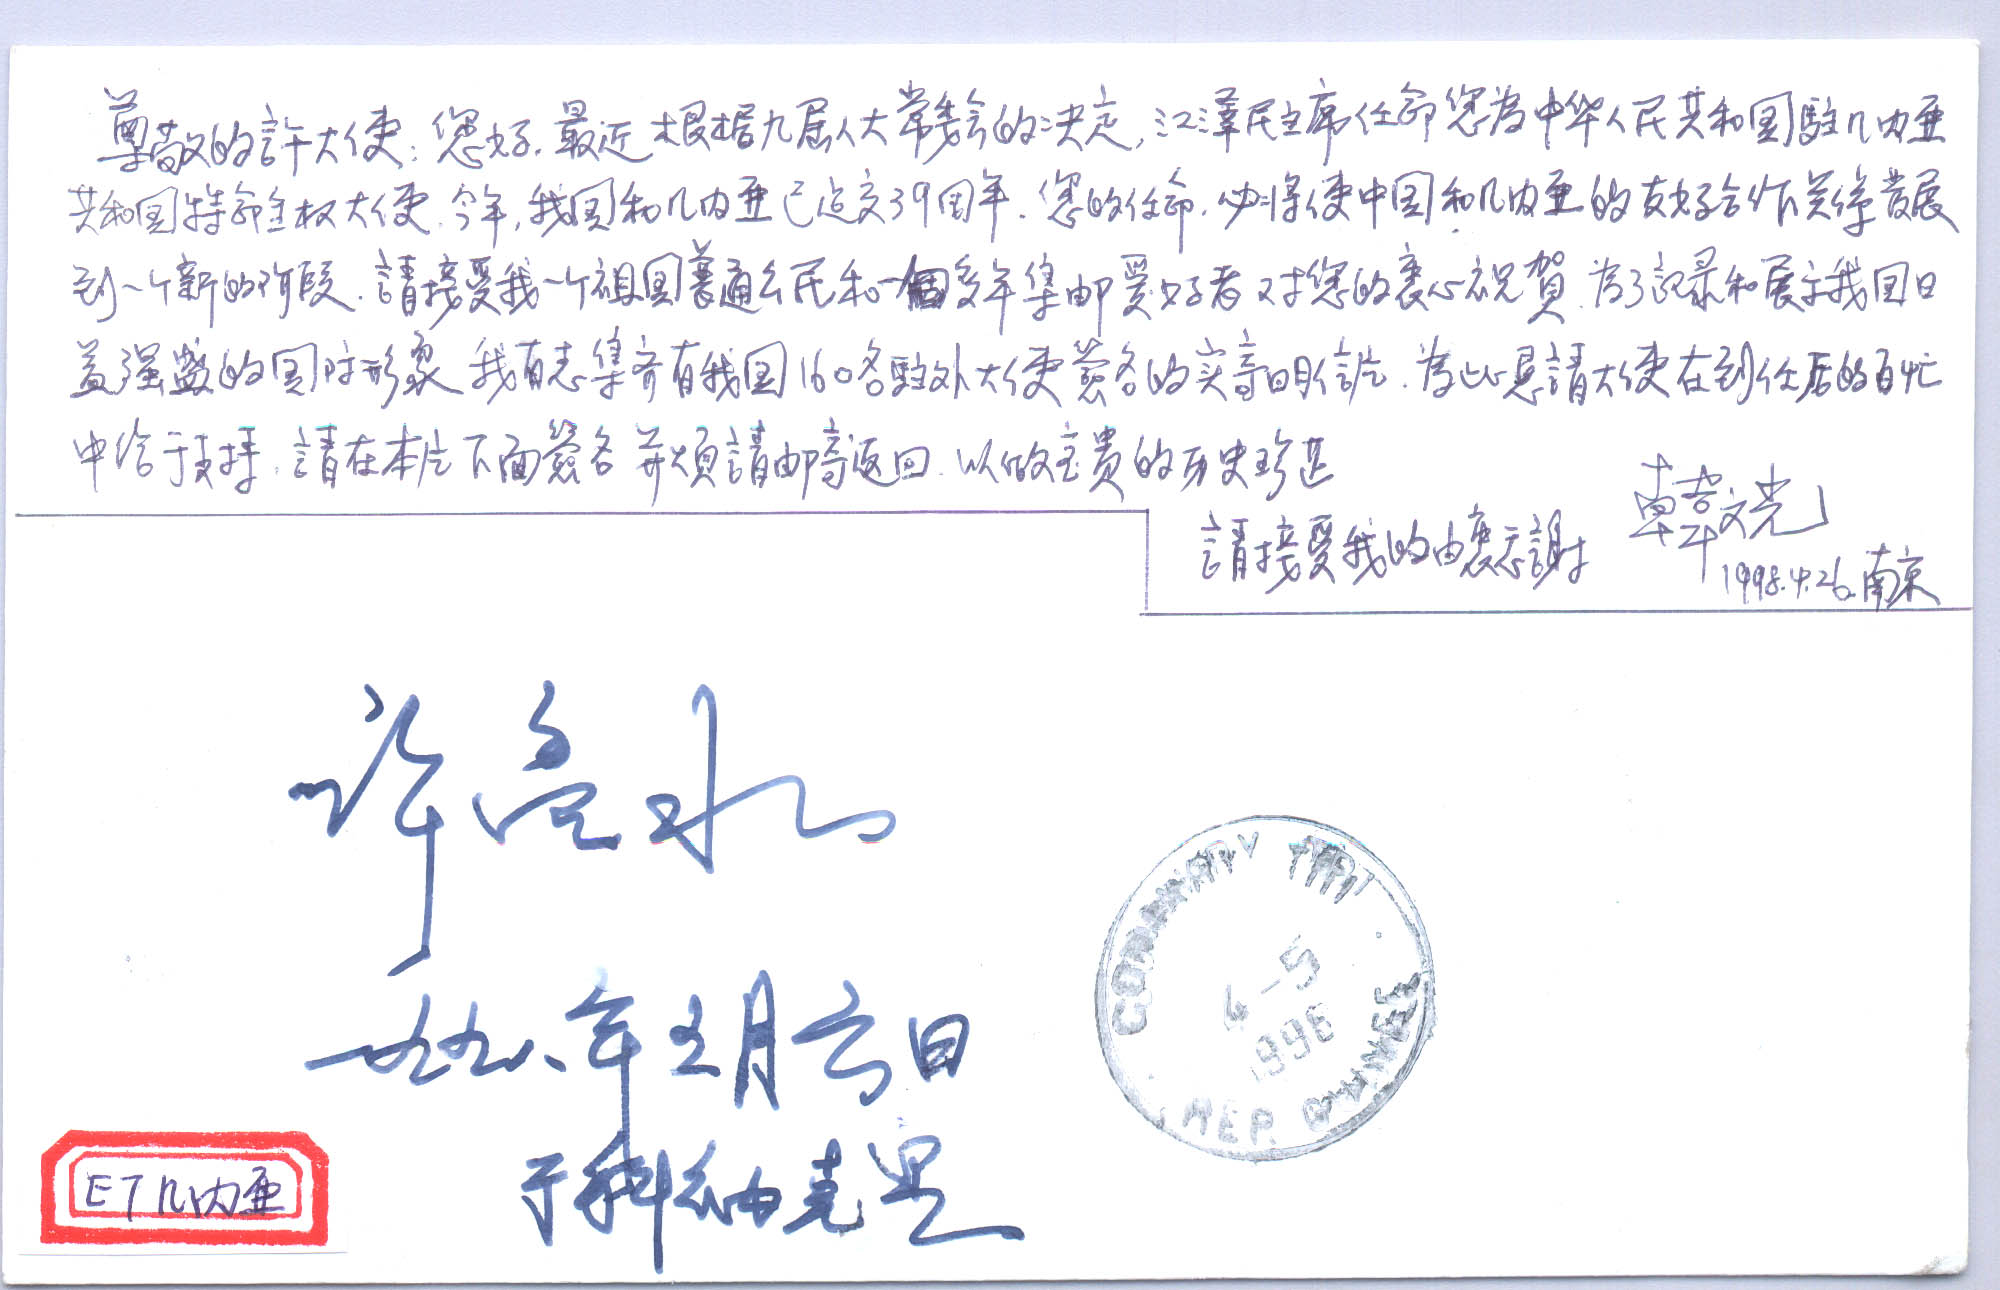 尊敬的許大使：您好.最近根据九届人大常委会的决定,江澤民主席任命您為中华人民共和国駐几内亚
共和国特命全权大使.今年,我国和几内亚已建交39周年.您的任命.必将使中国和几内亚的友好合作关係發展
到一个新的阶段.請接受我一个祖国普通公民和一個多年集邮爱好者对您的衷心祝賀.為了記录和展示我国日
益强盛的国际形象.我有志集齐有我国160名駐外大使簽名的实寄明信片.為此恳請大使在到任后的百忙
中给于支持.請在本片下面簽名并煩請邮寄返回.以做宝贵的历史珍芷
請接受我的由衷感謝
韓文光
1998.4.26.南京
许孟水
一九九八年五月六日
于科纳克里
CONAKRY
4-5
1998
REP. GUINEE
E7几内亚